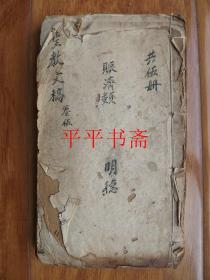 共伍册
賑濟類
明德
聖教文稿
卷伍
平平书斋